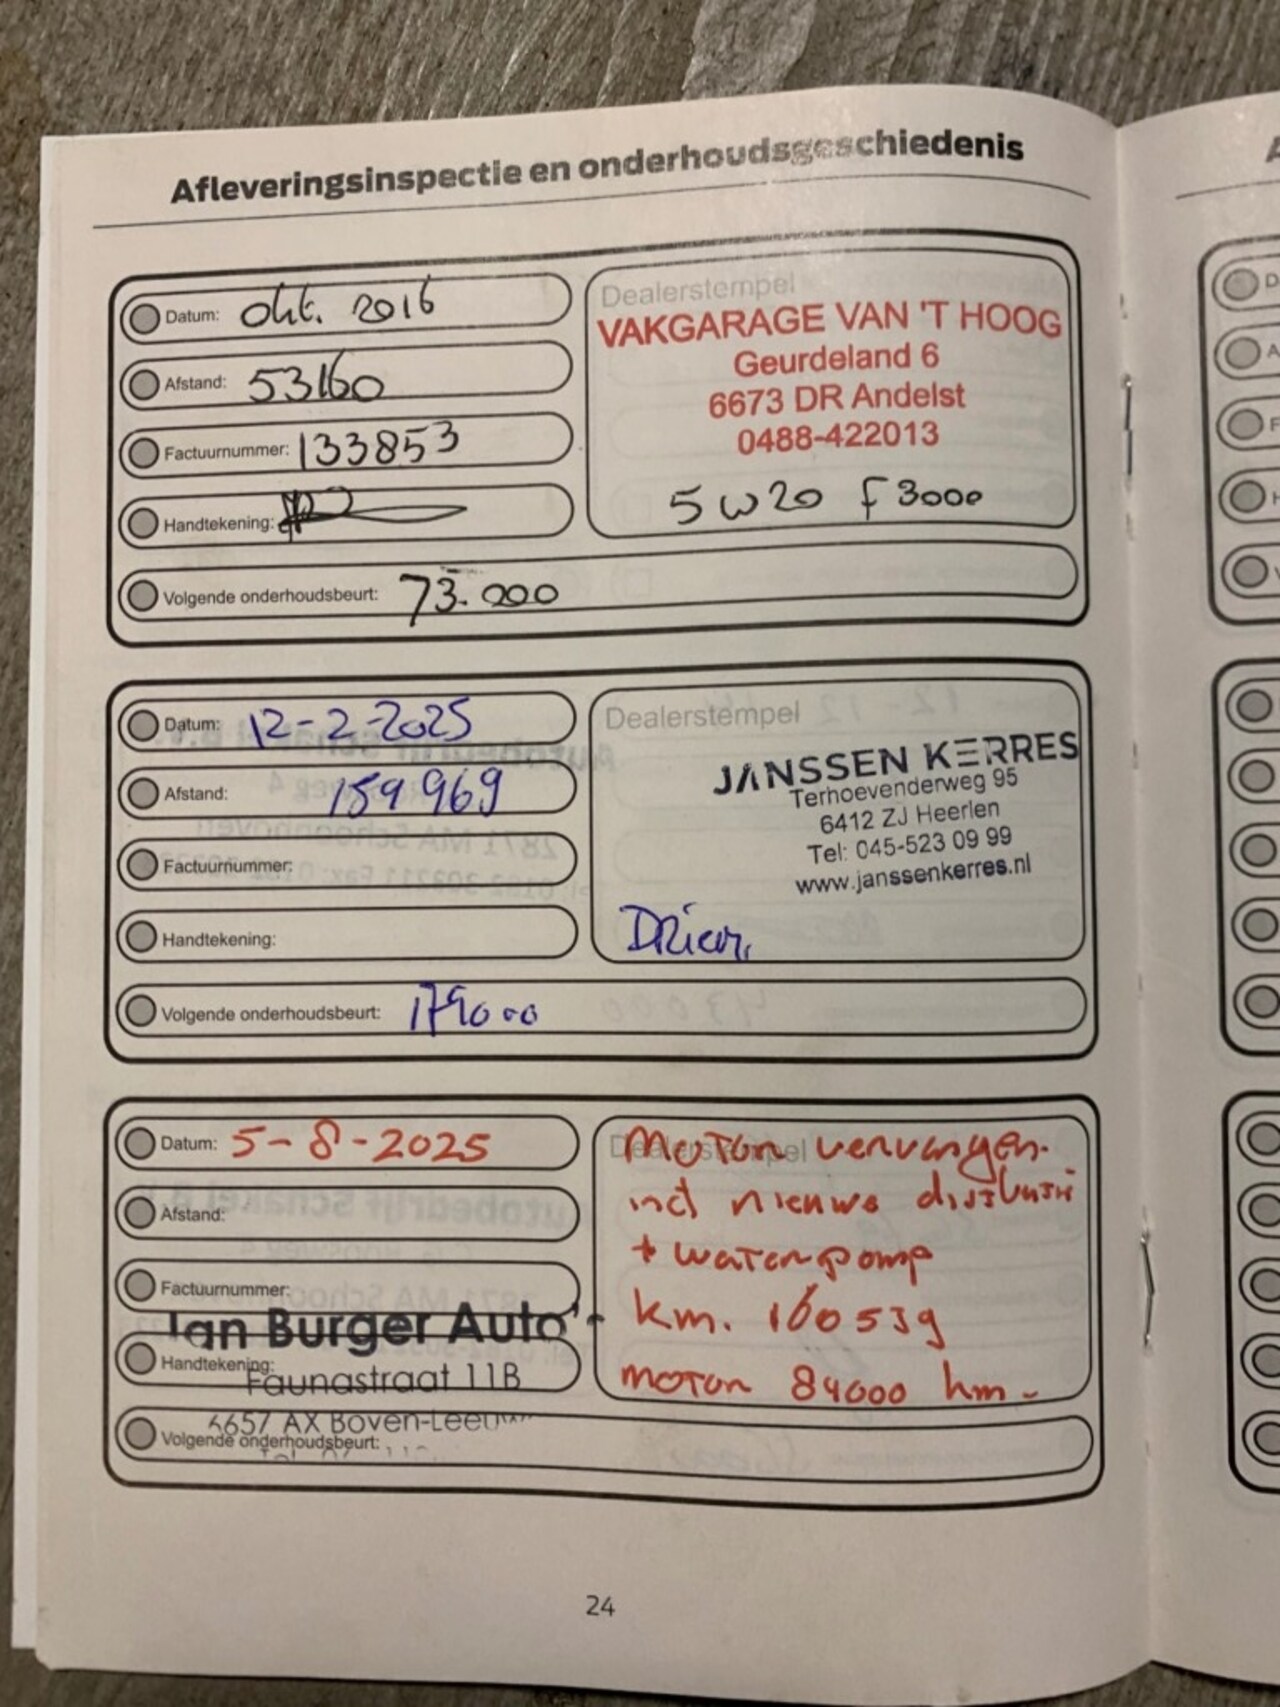 Afleveringsinspectie en onderhoudsgeschiedenis
Datum: Okt. 2016
Afstand: 53160
Factuurnummer: 133853
Handtekening:
Volgende onderhoudsbeurt: 73.000
Dealerstempel
VAKGARAGE VAN 'T HOOG
Geurdeland 6
6673 DR Andelst
0488-422013
5W20 F3000
Datum: 12-2-2025
Afstand: 159969
Factuurnummer:
Handtekening:
Volgende onderhoudsbeurt: 179000
Dealerstempel
JANSSEN KERRES
Terhoevenderweg 95
6412 ZJ Heerlen
Tel: 045-523 09 99
www.janssenkerres.nl
Datum: 5-8-2025
Afstand:
Factuurnummer:
Jan Burger Auto's
Handtekening:
Faunastraat 11B
6657 AX Boven-Leeuw
Volgende onderhoudsbeurt:
Dealerstempel
Motor vervangen.
incl nieuwe distributie
+ waterpomp
km. 160539
motor 84000 km.
24